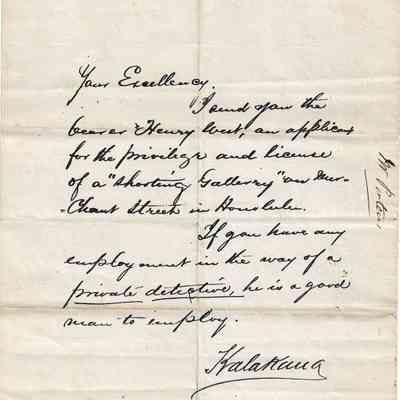 Your Excellency,
I send you the
bearer Henry West, an applicant
for the privilege and license
of a "Shooting Gallerry" on Mer-
Chant Street in Honolulu.
If you have any
employment in the way of a
private detective, he is a good
man to employ.
Kalakaua
Mr